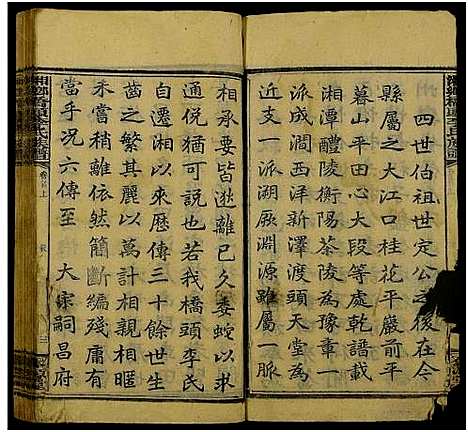 四伯祖世定公之後在今
縣屬之大江口桂花平嚴前平
暮山平田心大段等處乾譜
湘潭醴陵衡陽茶陵為豫章一
派成高澗西洋新澤渡大夫堂
近支一派溯厥淵源雖屬一脈
相承要皆迯離已久委蛇以求
通悦猶可說也若我橋頭李氏
自遷湘以來歷傳三十餘世生
齒之繁其麗以萬計相親相暱
未嘗稍離有不然簡斷編殘庸有
當乎况六傳至 大宗嗣昌府